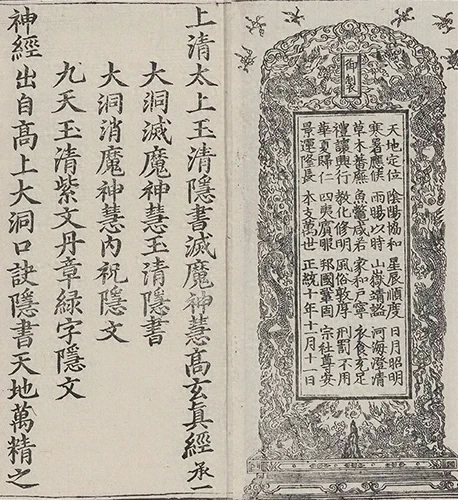 御製
天地定位 陰陽協和 星辰順度 日月昭明
寒暑應候 雨暘以時 山嶽靖謐 河海澄清
草木蕃廡 魚鱉咸若 家和戶寧 衣食充足
禮讓興行 教化修明 風俗敦厚 刑罰不用
華夏歸仁 四夷賓服 邦國鞏固 宗社尊安
景運隆長 本支萬世 正統十年十一月十一日
上清太上玉清隱書滅魔神慧高玄真經 承一
大洞滅魔神慧玉清隱書
大洞消魔神慧内祝隱文
九天玉清紫文丹章綠字隱文
神經出自高上大洞口訣隱書天地萬精之